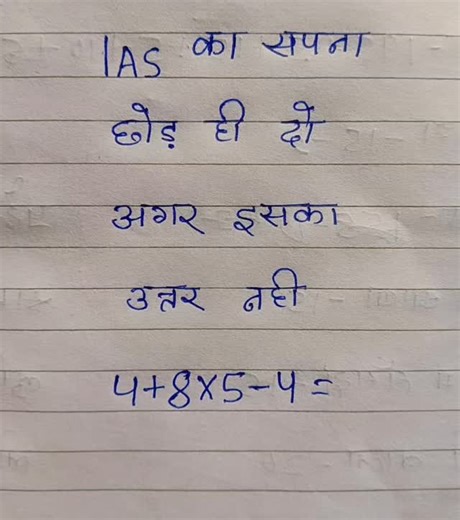 IAS का सपना
छोड़ ही दो
अगर इसका
उत्तर नही
4+8×5-4=